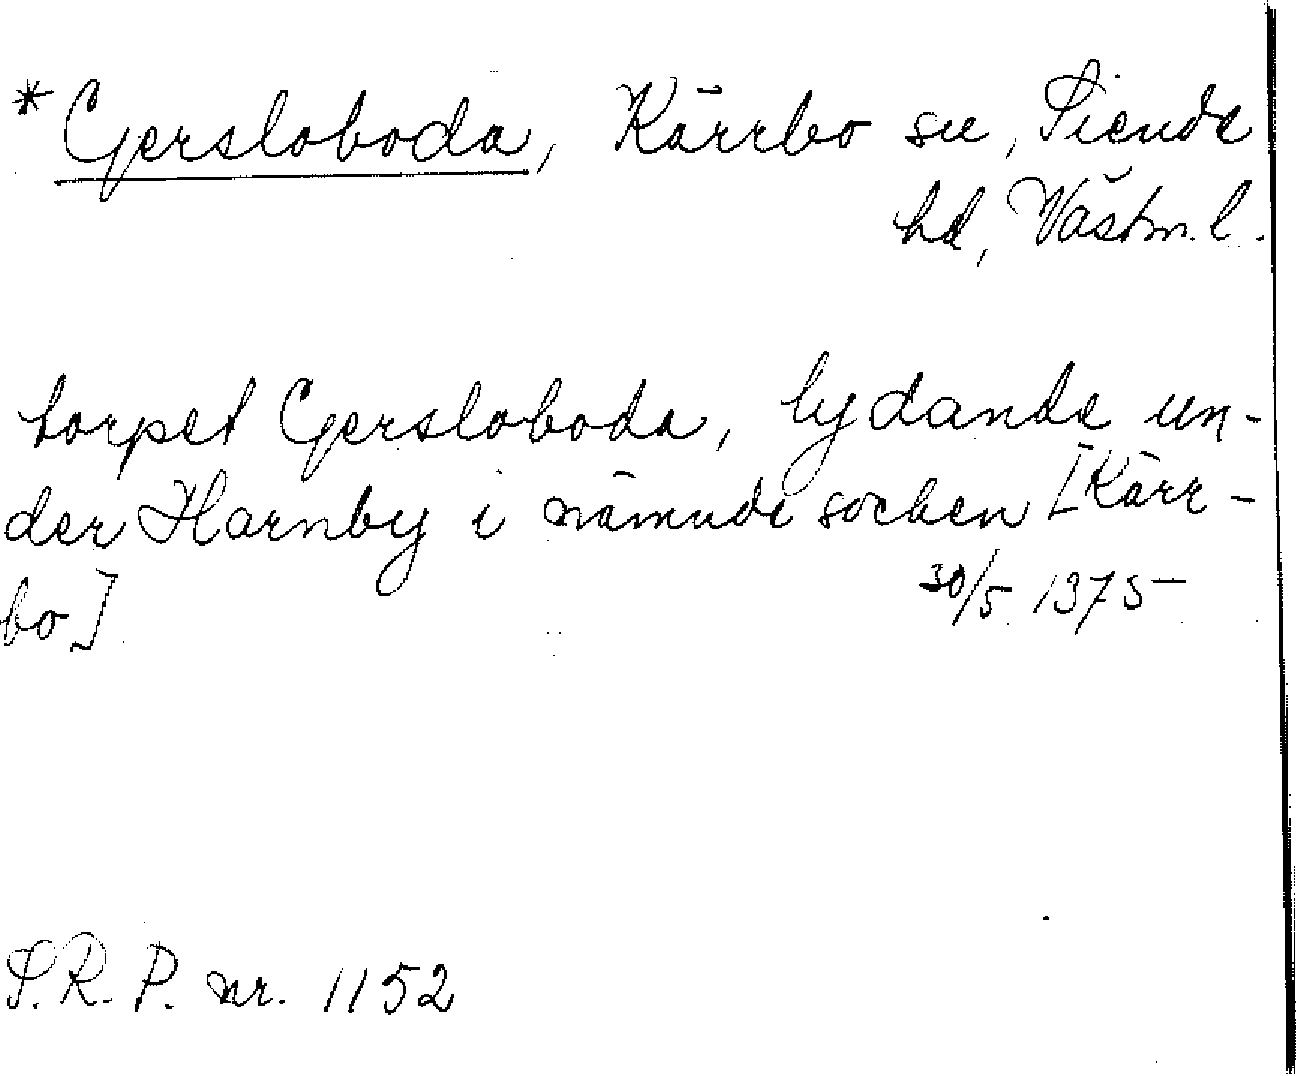 *Gersloboda, Kärrbo sn, Siende
hd, Västm. l.
torpet Gersloboda, lydande un-
der Harnby i nämnde socken [Kärr-
bo]
30/5 1375
S.R.P. nr. 1152